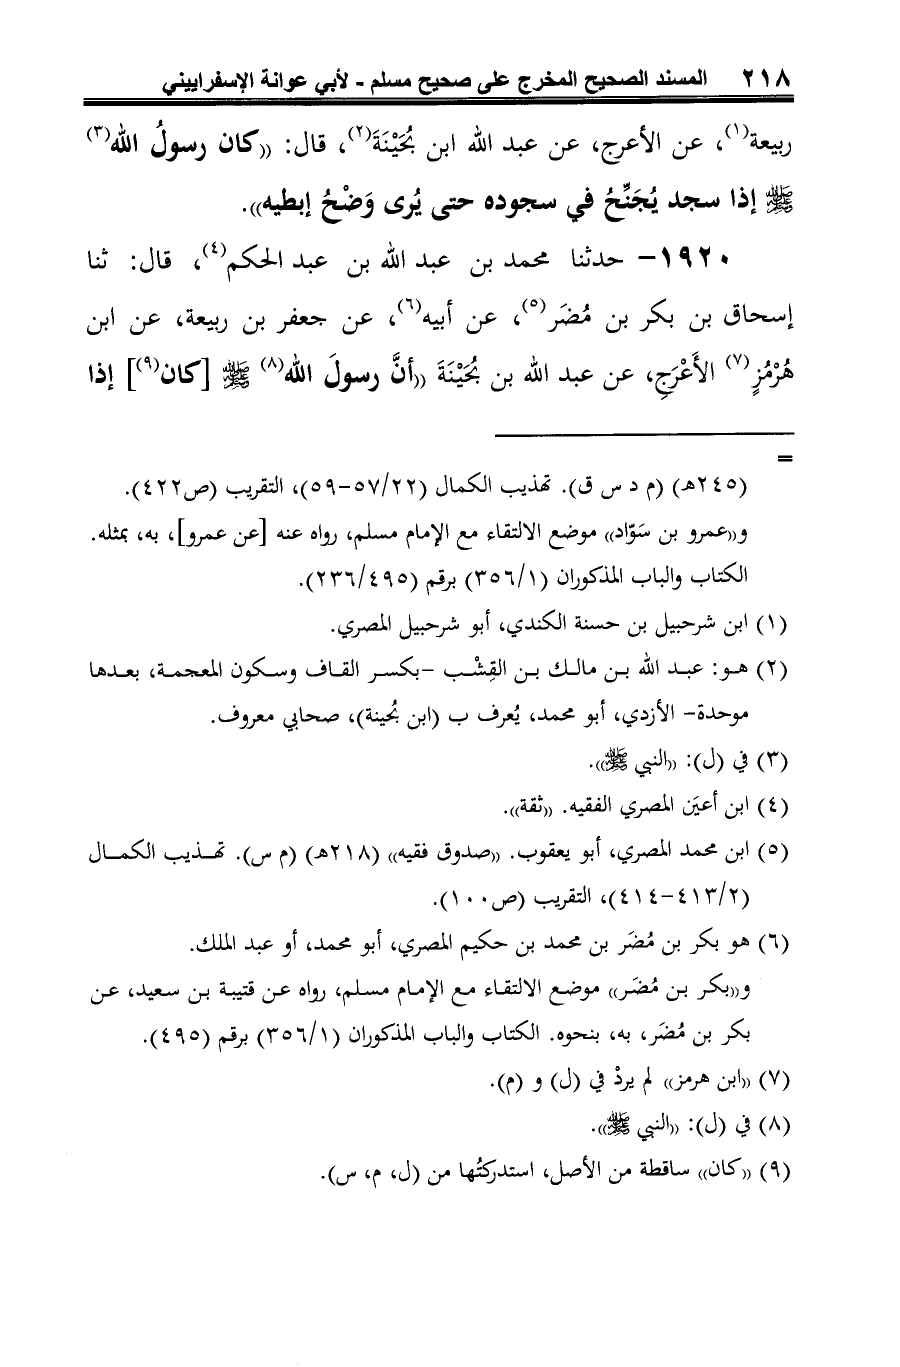 ٢١٨ المسند الصحيح المخرج على صحيح مسلم - لأبي عوانة الإسفراييني
ربيعة(١)، عن الأعرج، عن عبد الله ابن بُحَيْنَةَ(٢)، قال: «كان رسولُ الله(٣)
ﷺ إذا سجد يُجَنِّحُ في سجوده حتى يُرى وَضْحُ إبطيه».
١٩٢٠- حدثنا محمد بن عبد الله بن عبد الحكم(٤)، قال: ثنا
إسحاق بن بكر بن مُضَر(٥)، عن أبيه(٦)، عن جعفر بن ربيعة، عن ابن
هُرْمُزٍ(٧) الأَعْرَجِ، عن عبد الله بن بُحَيْنَةَ «أنَّ رسولَ الله(٨) ﷺ [كان(٩)] إذا
=
(٢٤٥هـ) (م د س ق). تهذيب الكمال (٥٧/٢٢-٥٩)، التقريب (ص٤٢٢).
و«عمرو بن سَوّاد» موضع الالتقاء مع الإمام مسلم، رواه عنه [عن عمرو]، به، بمثله.
الكتاب والباب المذكوران (٣٥٦/١) برقم (٢٣٦/٤٩٥).
(١) ابن شرحبيل بن حسنة الكندي، أبو شرحبيل المصري.
(٢) هو: عبد الله بن مالك بن القِشْب -بكسر القاف وسكون المعجمة، بعدها
موحدة- الأزدي، أبو محمد، يُعرف ب (ابن بُحينة)، صحابي معروف.
(٣) في (ل): «النبي ﷺ».
(٤) ابن أعيَن المصري الفقيه. «ثقة».
(٥) ابن محمد المصري، أبو يعقوب. «صدوق فقيه» (٢١٨هـ) (م س). تهذيب الكمال
(٤١٣/٢-٤١٤)، التقريب (ص١٠٠).
(٦) هو بكر بن مُضَر بن محمد بن حكيم المصري، أبو محمد، أو عبد الملك.
و«بكر بن مُضَر» موضع الالتقاء مع الإمام مسلم، رواه عن قتيبة بن سعيد، عن
بكر بن مُضَر، به، بنحوه. الكتاب والباب المذكوران (٣٥٦/١) برقم (٤٩٥).
(٧) «ابن هرمز» لم يردْ في (ل) و (م).
(٨) في (ل): «النبي ﷺ».
(٩) «كان» ساقطة من الأصل، استدركتُها من (ل، م، س).